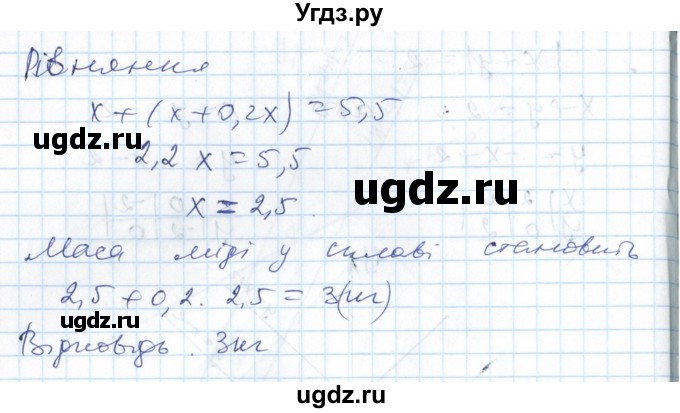 Угдз.ру
Рівняння
x + (x + 0,2x) = 5,5
2,2 x = 5,5
ugdz.ru
ugdz.ru
x = 2,5
Маса міді у сплаві становить
2,5 + 0,2 · 2,5 = 3(кг)
ugdz.ru
Відповідь. 3кг
ugdz.ru